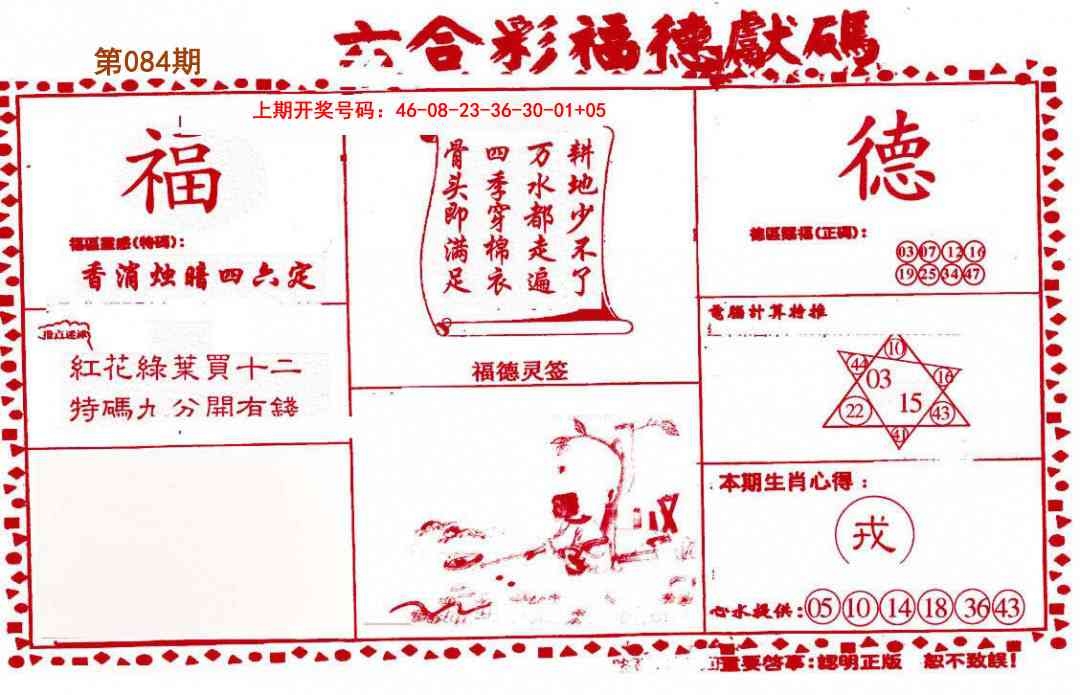 六合彩福德獻碼
第084期
上期开奖号码：46-08-23-36-30-01+05
福
福區靈感(特碼)：
香消烛暗四六定
紅花綠葉買十二
特碼九分開有錢
耕地少不了
万水都走遍
四季穿棉衣
骨头即满足
福德灵签
德
德區賜福(正碼)：
03 07 12 16
19 25 34 47
電腦計算特推
10
44 03 16
22 15 43
41
本期生肖心得：
戎
心水提供：05 10 14 18 36 43
重要啓事：認明正版 恕不致誤！